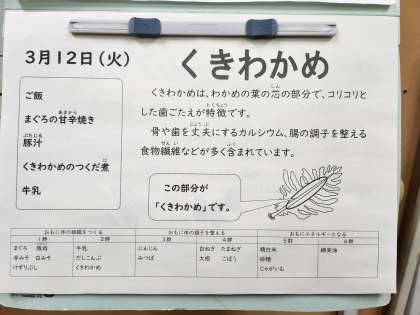 3月12日(火)
くきわかめ
ご飯
まぐろの甘辛焼き
豚汁
くきわかめのつくだ煮
牛乳
くきわかめは、わかめの葉の芯の部分で、コリコリと
した歯ごたえが特徴です。
骨や歯を丈夫にするカルシウム、腸の調子を整える
食物繊維などが多く含まれています。
この部分が
「くきわかめ」です。
おもに体の組織をつくる おもに体の調子を整える おもにエネルギーとなる
1群 2群 3群 4群 5群 6群
まぐろ 豚肉 牛乳 にんじん 白ねぎ たまねぎ 精白米 綿実油
赤みそ 白みそ だしこんぶ みつば 大根 ごぼう 砂糖
けずりぶし くきわかめ じゃがいも